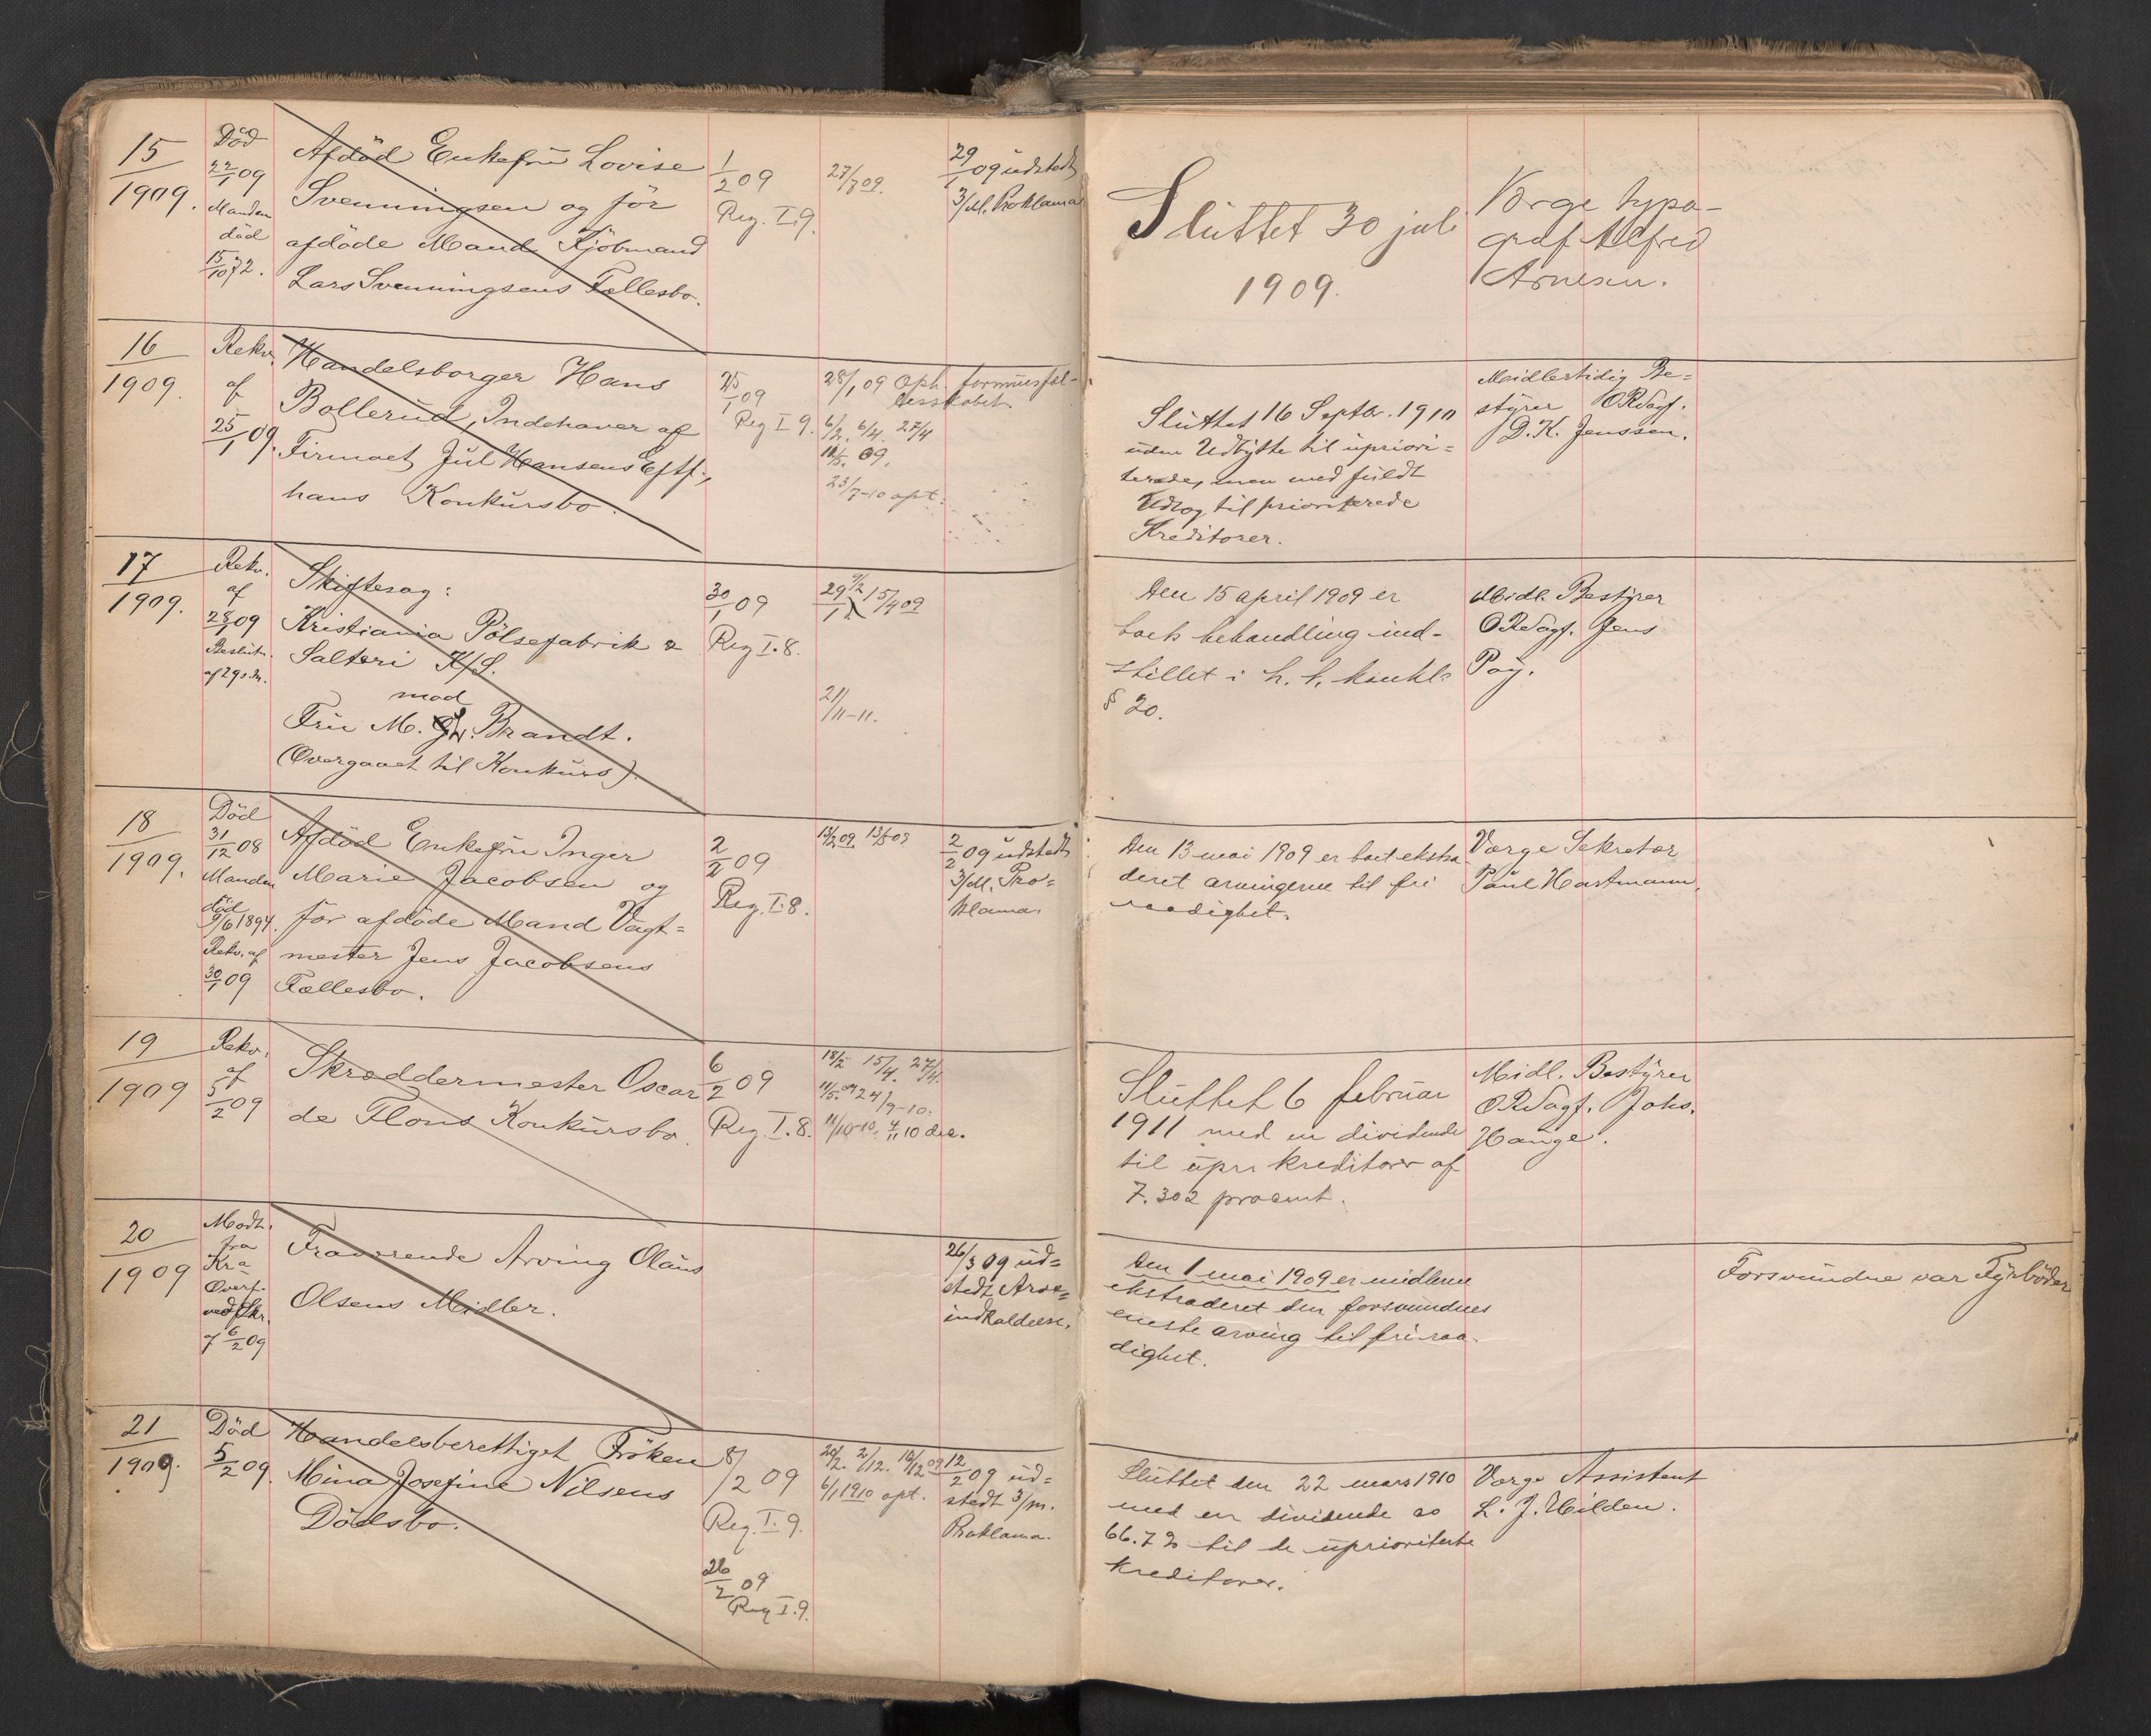 15
1909.
Död
22/1 09
Manden
död
15/10 72.
Afdöd Enkefru Lovise
Svenningsen og för
afdöde Mand Kjöbmand
Lars Svenningsens Fællesbo.
1/2 09
Reg. I.9.
27/7 09.
29/1 09 udstedt
3/M. Proklama
Sluttet 30 juli
1909.
Værge typo-
graf Alfred
Arnesen.
16
1909.
Rekv.
af
25/1 09.
Handelsborger Hans
Bollerud, Indehaver af
Firmaet Jul Hansens Eftf.,
hans Konkursbo.
25/1 09
Reg I 9.
28/1 09 Oph. formuesfæl-
lesskabet
6/2. 6/4. 27/4
09.
23/7-10 opt.
Sluttet 16 Septbr. 1910
uden Udbytte til upriori=
terede, men med fuldt
Udlæg til prioriterede
Kreditorer.
Midlertidig Be=
styrer ORSagf.
D. K. Jenssen.
17
1909.
Rekv.
af
28/1 09
Beslutn.
af 29 s.M.
Skiftesag:
Kristiania Pölsefabrik &
Salteri K/S.
mod
Fru M. Brandt.
(Overgaaet til Konkurs).
30/1 09
Reg I.8.
29/1 9/2 15/4 09
21/11-11.
Den 15 april 1909 er
boets behandling ind-
stillet i h. t. konkl.
§ 20.
Midl. Bestyrer
ORSagf. Jens
Pay.
18
1909.
Död
31/12 08
Manden
död
9/6 1894.
Rekv. af
30/1 09
Afdöd Enkefru Inger
Marie Jacobsen og
för afdöde Mand Vagt=
mester Jens Jacobsens
Fællesbo.
2/2 09
Reg. I.8.
13/2 09. 13/5 09
2/2 09 udstedt
3/M. Pro=
klama.
Den 13 mai 1909 er boet ekstra-
deret arvingerne til fri
raadighet.
Værge Sekretær
Paul Hartmann.
19
1909
Rekv.
af
5/2 09
Skræddermester Oscar
de Flons Konkursbo.
6/2 09
Reg. I.8.
18/2 15/4. 27/4.
11/5. 09 24/9-10.
11/10-10. 4/11 10 dec.
Sluttet 6 februar
1911 med en dividende
til upr. kreditorer af
7.302 procent.
Midl. Bestyrer
ORSagf. Johs.
Hauge.
20
1909
Modt.
fra
Kra
Overf.
ved Skr.
af 6/2 09
Fraværende Arving Olaus
Olsens Midler.
26/3 09 ud=
stedt Arve=
indkaldelse.
Den 1 mai 1909 er midlerne
ekstraderet den forsvundnes
eneste arving til fri raa-
dighet.
Forsvundne var Fyrböder
21
1909.
Död
5/2 09.
Handelsberettiget Fröken
Mina Josefine Nilsens
Dödsbo.
8/2 09
Reg. I.9.
26/2 09
Reg I.9.
20/2. 2/12. 16/12 09
6/1 1910 opt.
12/2 09 ud=
stedt 3/m.
Proklama.
Sluttet den 22 mars 1910
med en dividende av
66.7 % til de uprioriterte
kreditorer.
Værge Assistent
L. J. Hilden.